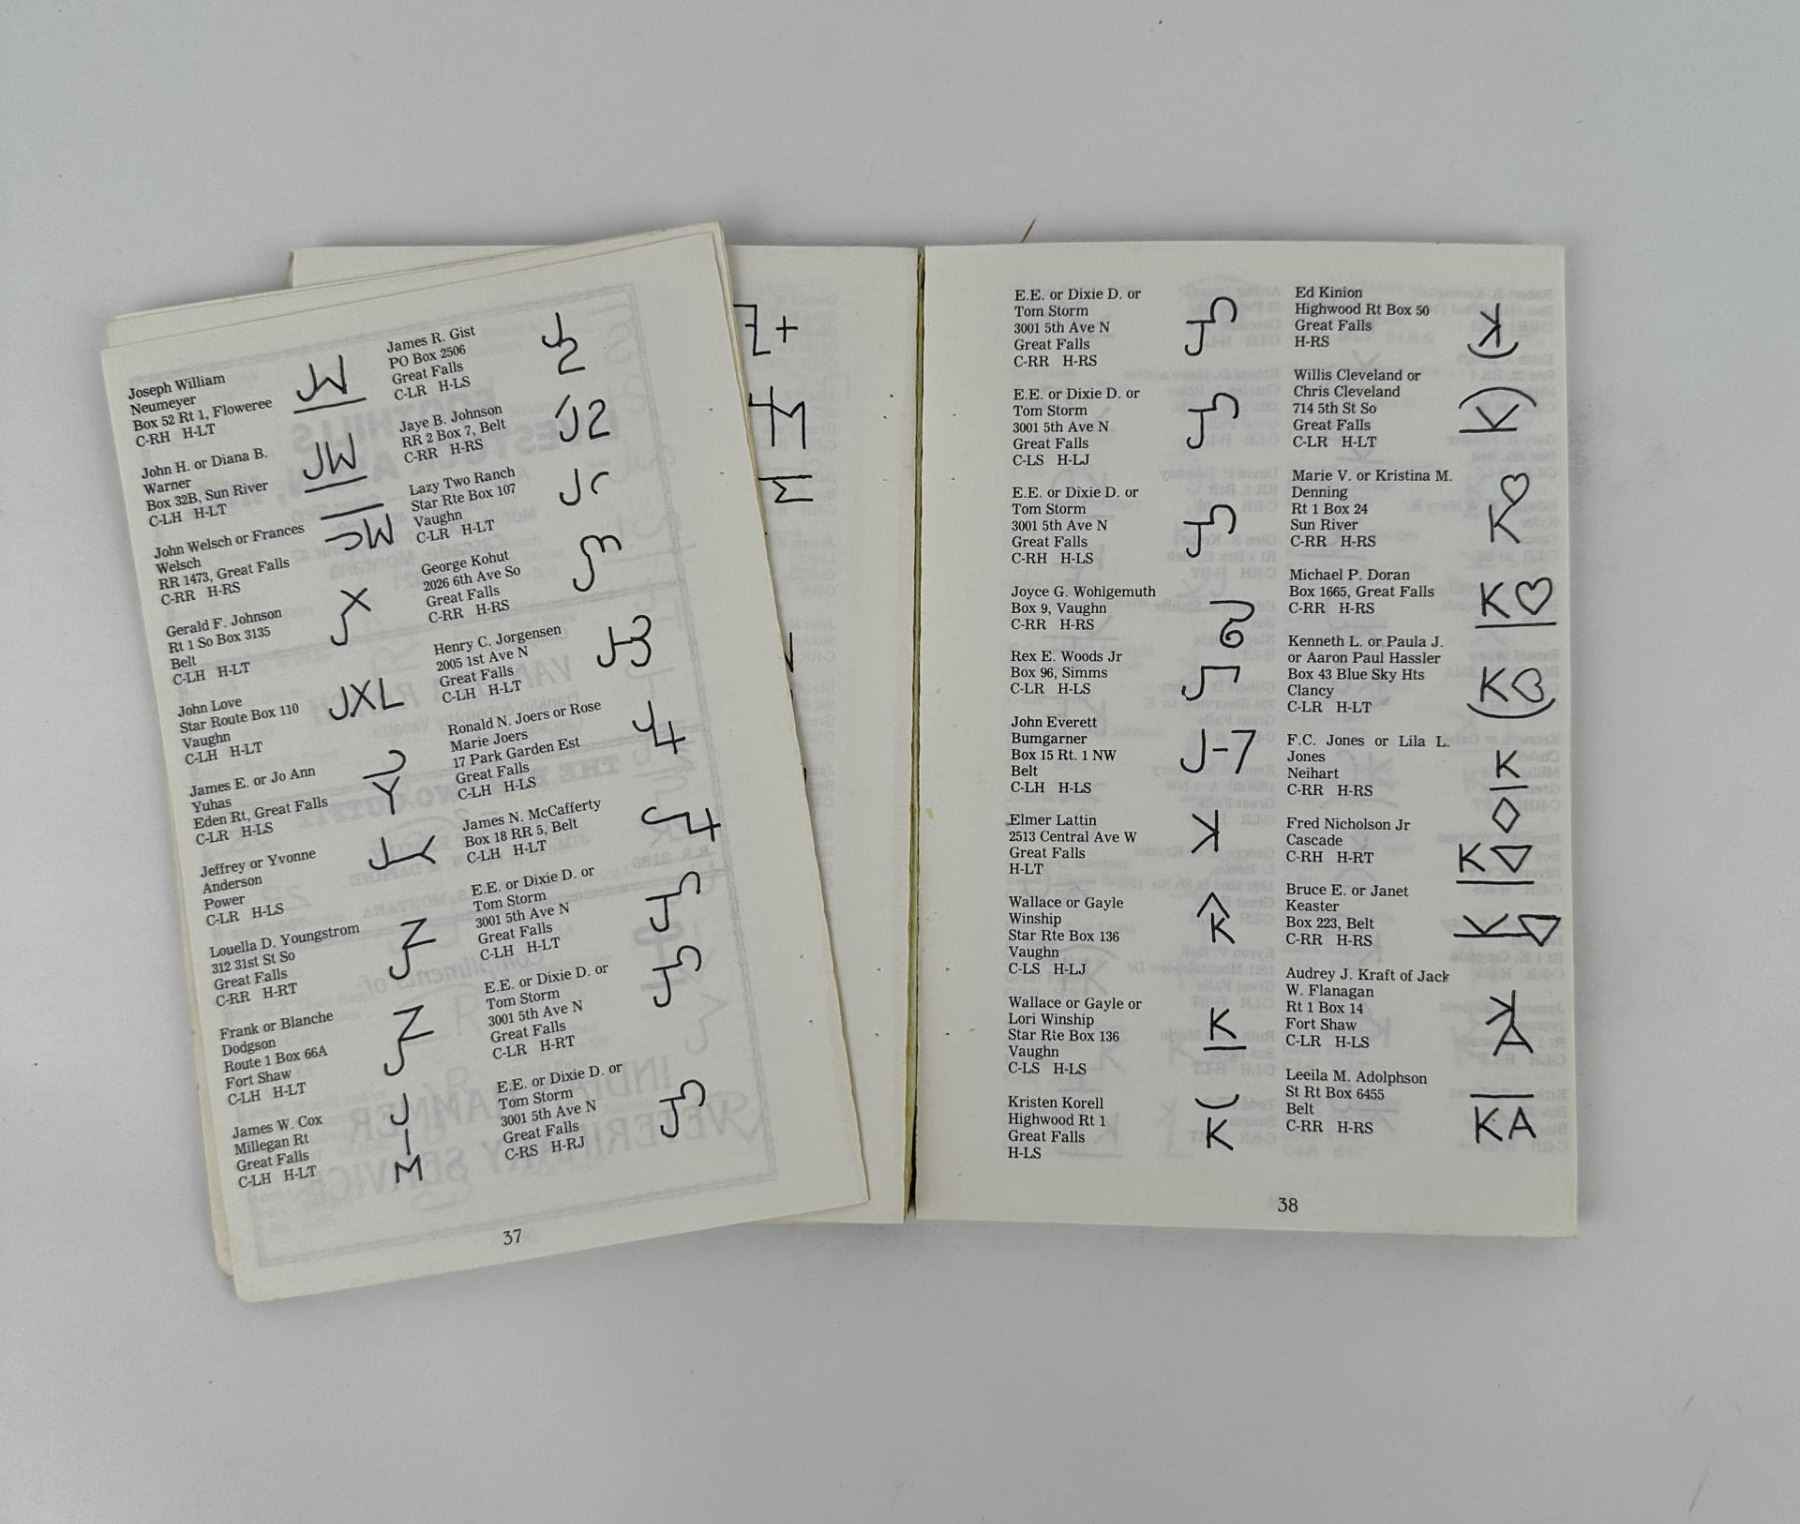 Joseph William
Neumeyer
Box 52 Rt 1, Floweree
C-RH H-LT
JW
John H. or Diana B.
Warner
Box 32B, Sun River
C-LH H-LT
JW
John Welsch or Frances
Welsch
RR 1473, Great Falls
C-RR H-RS
Gerald F. Johnson
Rt 1 So Box 3135
Belt
C-LH H-LT
John Love
Star Route Box 110
Vaughn
C-LH H-LT
JXL
James E. or Jo Ann
Yuhas
Eden Rt, Great Falls
C-LR H-LS
Jeffrey or Yvonne
Anderson
Power
C-LR H-LS
Louella D. Youngstrom
312 31st St So
Great Falls
C-RR H-RT
Frank or Blanche
Dodgson
Route 1 Box 66A
Fort Shaw
C-LH H-LT
James W. Cox
Millegan Rt
Great Falls
C-LH H-LT
J
M
James R. Gist
PO Box 2506
Great Falls
C-LR H-LS
J2
Jaye B. Johnson
RR 2 Box 7, Belt
C-RR H-RS
J2
Lazy Two Ranch
Star Rte Box 107
Vaughn
C-LR H-LT
George Kohut
2026 6th Ave So
Great Falls
C-RR H-RS
Henry C. Jorgensen
2005 1st Ave N
Great Falls
C-LH H-LT
J3
Ronald N. Joers or Rose
Marie Joers
17 Park Garden Est
Great Falls
C-LH H-LS
J4
James N. McCafferty
Box 18 RR 5, Belt
C-LH H-LT
E.E. or Dixie D. or
Tom Storm
3001 5th Ave N
Great Falls
C-LH H-LT
E.E. or Dixie D. or
Tom Storm
3001 5th Ave N
Great Falls
C-LR H-RT
E.E. or Dixie D. or
Tom Storm
3001 5th Ave N
Great Falls
C-RS H-RJ
37
E.E. or Dixie D. or
Tom Storm
3001 5th Ave N
Great Falls
C-RR H-RS
E.E. or Dixie D. or
Tom Storm
3001 5th Ave N
Great Falls
C-LS H-LJ
E.E. or Dixie D. or
Tom Storm
3001 5th Ave N
Great Falls
C-RH H-LS
Joyce G. Wohlgemuth
Box 9, Vaughn
C-RR H-RS
Rex E. Woods Jr
Box 96, Simms
C-LR H-LS
John Everett
Bumgarner
Box 15 Rt. 1 NW
Belt
C-LH H-LS
J-7
Elmer Lattin
2513 Central Ave W
Great Falls
H-LT
Wallace or Gayle
Winship
Star Rte Box 136
Vaughn
C-LS H-LJ
K
Wallace or Gayle or
Lori Winship
Star Rte Box 136
Vaughn
C-LS H-LS
K
Kristen Korell
Highwood Rt 1
Great Falls
H-LS
K
Ed Kinion
Highwood Rt Box 50
Great Falls
H-RS
Willis Cleveland or
Chris Cleveland
714 5th St So
Great Falls
C-LR H-LT
Marie V. or Kristina M.
Denning
Rt 1 Box 24
Sun River
C-RR H-RS
K
Michael P. Doran
Box 1665, Great Falls
C-RR H-RS
K
Kenneth L. or Paula J.
or Aaron Paul Hassler
Box 43 Blue Sky Hts
Clancy
C-LR H-LT
K
F.C. Jones or Lila L.
Jones
Neihart
C-RR H-RS
K
Fred Nicholson Jr
Cascade
C-RH H-RT
K
Bruce E. or Janet
Keaster
Box 223, Belt
C-RR H-RS
Audrey J. Kraft of Jack
W. Flanagan
Rt 1 Box 14
Fort Shaw
C-LR H-LS
A
Leeila M. Adolphson
St Rt Box 6455
Belt
C-RR H-RS
KA
38